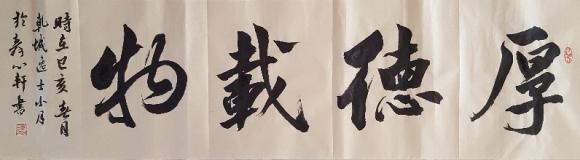 厚德載物
時在己亥春月
乾城遠士小月
於壽心軒書